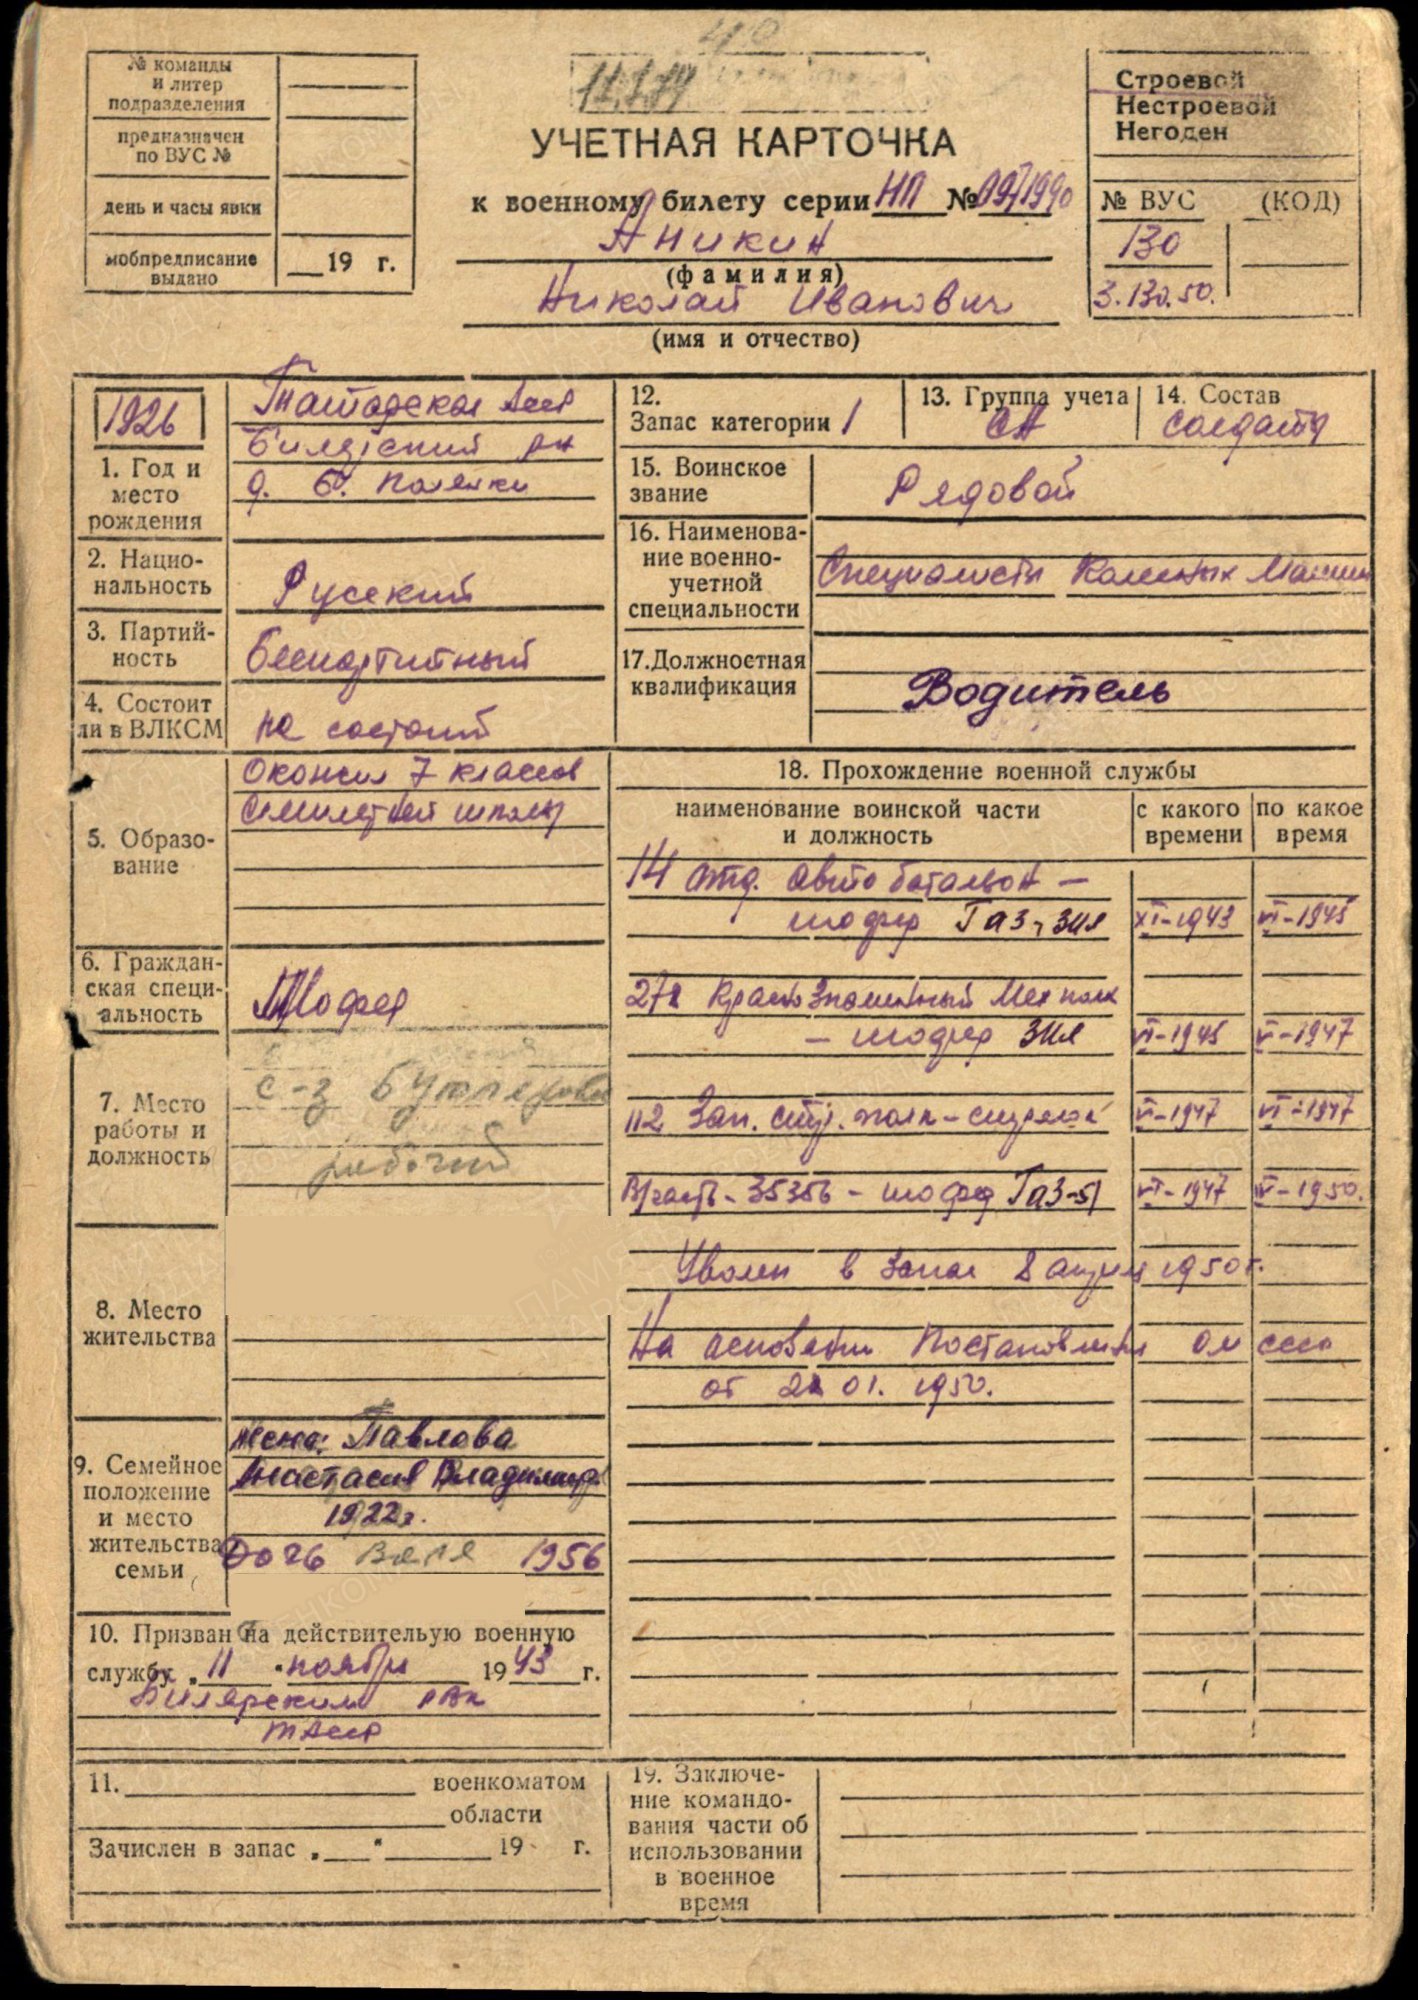 № команды
и литер
подразделения
предназначен
по ВУС №
день и часы явки
мобпредписание
выдано
19 г.
11.1.74
УЧЕТНАЯ КАРТОЧКА
к военному билету серии НП №0971990
Аникин
(фамилия)
Николай Иванович
(имя и отчество)
Строевой
Нестроевой
Негоден
№ ВУС (КОД)
130
3.130.50.
1926
1. Год и
место
рождения
Татарская Асср
Билярский рн
д. Б. Полянки
2. Нацио-
нальность
Русский
3. Партий-
ность
беспартийный
4. Состоит
ли в ВЛКСМ
не состоит
5. Образо-
вание
Окончил 7 классов
Семилетней школы
6. Граждан-
ская специ-
альность
Шофер
7. Место
работы и
должность
с-з Бутлерова
рабочий
8. Место
жительства
9. Семейное
положение
и место
жительства
семьи
жена: Павлова
Анастасия Владимир
1922г.
Дочь Валя 1956
10. Призван на действительую военную
службу „11 " ноября 1943 г.
Билярским РВК
ТАССР
11. военкоматом
области
Зачислен в запас „ " 19 г.
12.
Запас категории 1
13. Группа учета
СА
14. Состав
солдаты
15. Воинское
звание
Рядовой
16. Наименова-
ние военно-
учетной
специальности
Специалисты Колесных Машин
17. Должностная
квалификация
Водитель
18. Прохождение военной службы
наименование воинской части
и должность
с какого
времени
по какое
время
14 отд. авто батальон —
шофер Газ, Зил XI-1943 VI-1945
278 Краснознаменный Мех полк
— шофер Зил VI-1945 V-1947
112 Зап. стр. полк - стрелок V-1947 VI-1947
В/часть - 35356 - шофер Газ-51 VI-1947 IV-1950.
Уволен в запас 8 апреля 1950г.
На основании Постановления СМ СССР
от 21 01. 1950.
19. Заключе-
ние командо-
вания части об
использовании
в военное
время